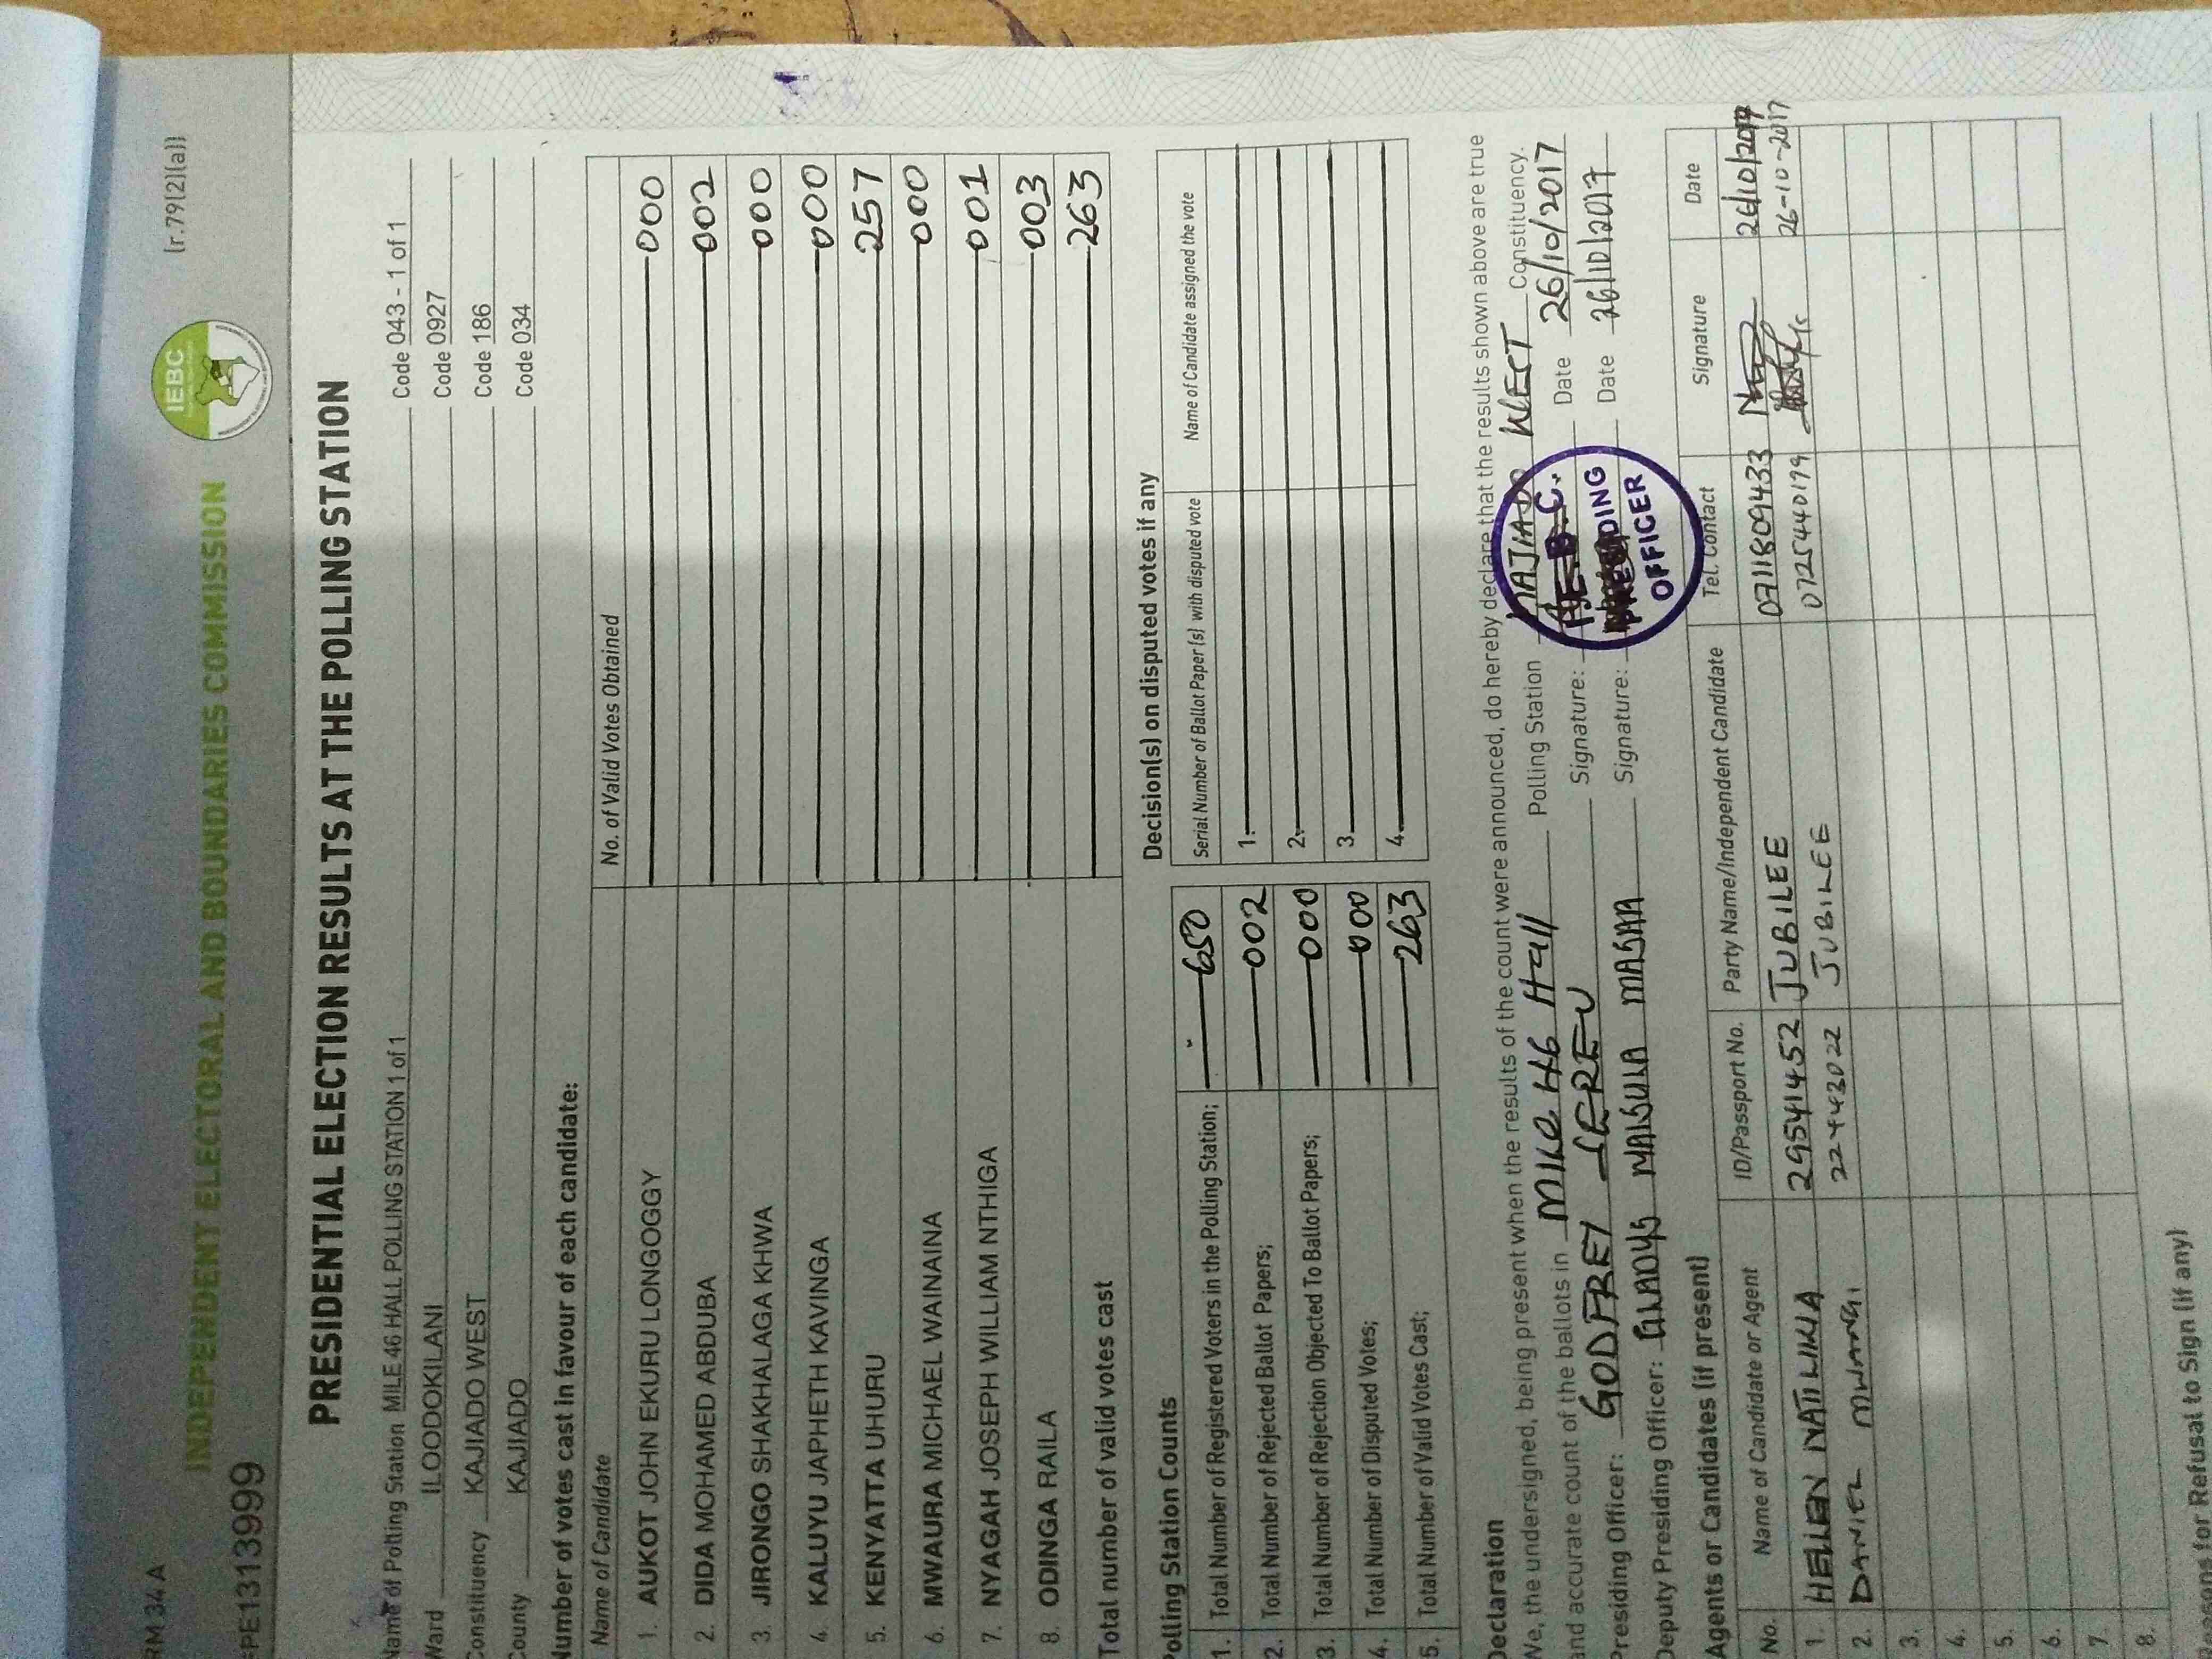 RM 34 A
(r.79(2)(a))
IEBC
INDEPENDENT ELECTORAL AND BOUNDARIES COMMISSION
PE1313999
PRESIDENTIAL ELECTION RESULTS AT THE POLLING STATION
Name of Polling Station MILE 46 HALL POLLING STATION 1 of 1 Code 043 - 1 of 1
Ward ILOODOKILANI Code 0927
Constituency KAJIADO WEST Code 186
County KAJIADO Code 034
Number of votes cast in favour of each candidate:
Name of Candidate No. of Valid Votes Obtained
1. AUKOT JOHN EKURU LONGOGGY 000
2. DIDA MOHAMED ABDUBA 002
3. JIRONGO SHAKHALAGA KHWA 000
4. KALUYU JAPHETH KAVINGA 000
5. KENYATTA UHURU 257
6. MWAURA MICHAEL WAINAINA 000
7. NYAGAH JOSEPH WILLIAM NTHIGA 001
8. ODINGA RAILA 003
Total number of valid votes cast 263
Polling Station Counts
1. Total Number of Registered Voters in the Polling Station; 650
2. Total Number of Rejected Ballot Papers; 002
3. Total Number of Rejection Objected To Ballot Papers; 000
4. Total Number of Disputed Votes; 000
5. Total Number of Valid Votes Cast; 263
Decision(s) on disputed votes if any
Serial Number of Ballot Paper (s) with disputed vote Name of Candidate assigned the vote
1.
2.
3.
4.
Declaration
We, the undersigned, being present when the results of the count were announced, do hereby declare that the results shown above are true
and accurate count of the ballots in MILE 46 Hall Polling Station KAJIADO WEST Constituency.
Presiding Officer: GODFREY SEREU Signature: Date 26/10/2017
Deputy Presiding Officer: GLADYS Signature: Date 26/10/2017
I.E.B.C.
PRESIDING
OFFICER
Agents or Candidates (if present)
No. Name of Candidate or Agent ID/Passport No. Party Name/Independent Candidate Tel. Contact Signature Date
1. HELLEN 29541452 JUBILEE 0711809433 26/10/2017
2. DANIEL MWANGI 22443022 JUBILEE 0725440199 26-10-2017
3.
4.
5.
6.
7.
8.
Reasons for Refusal to Sign (if any)